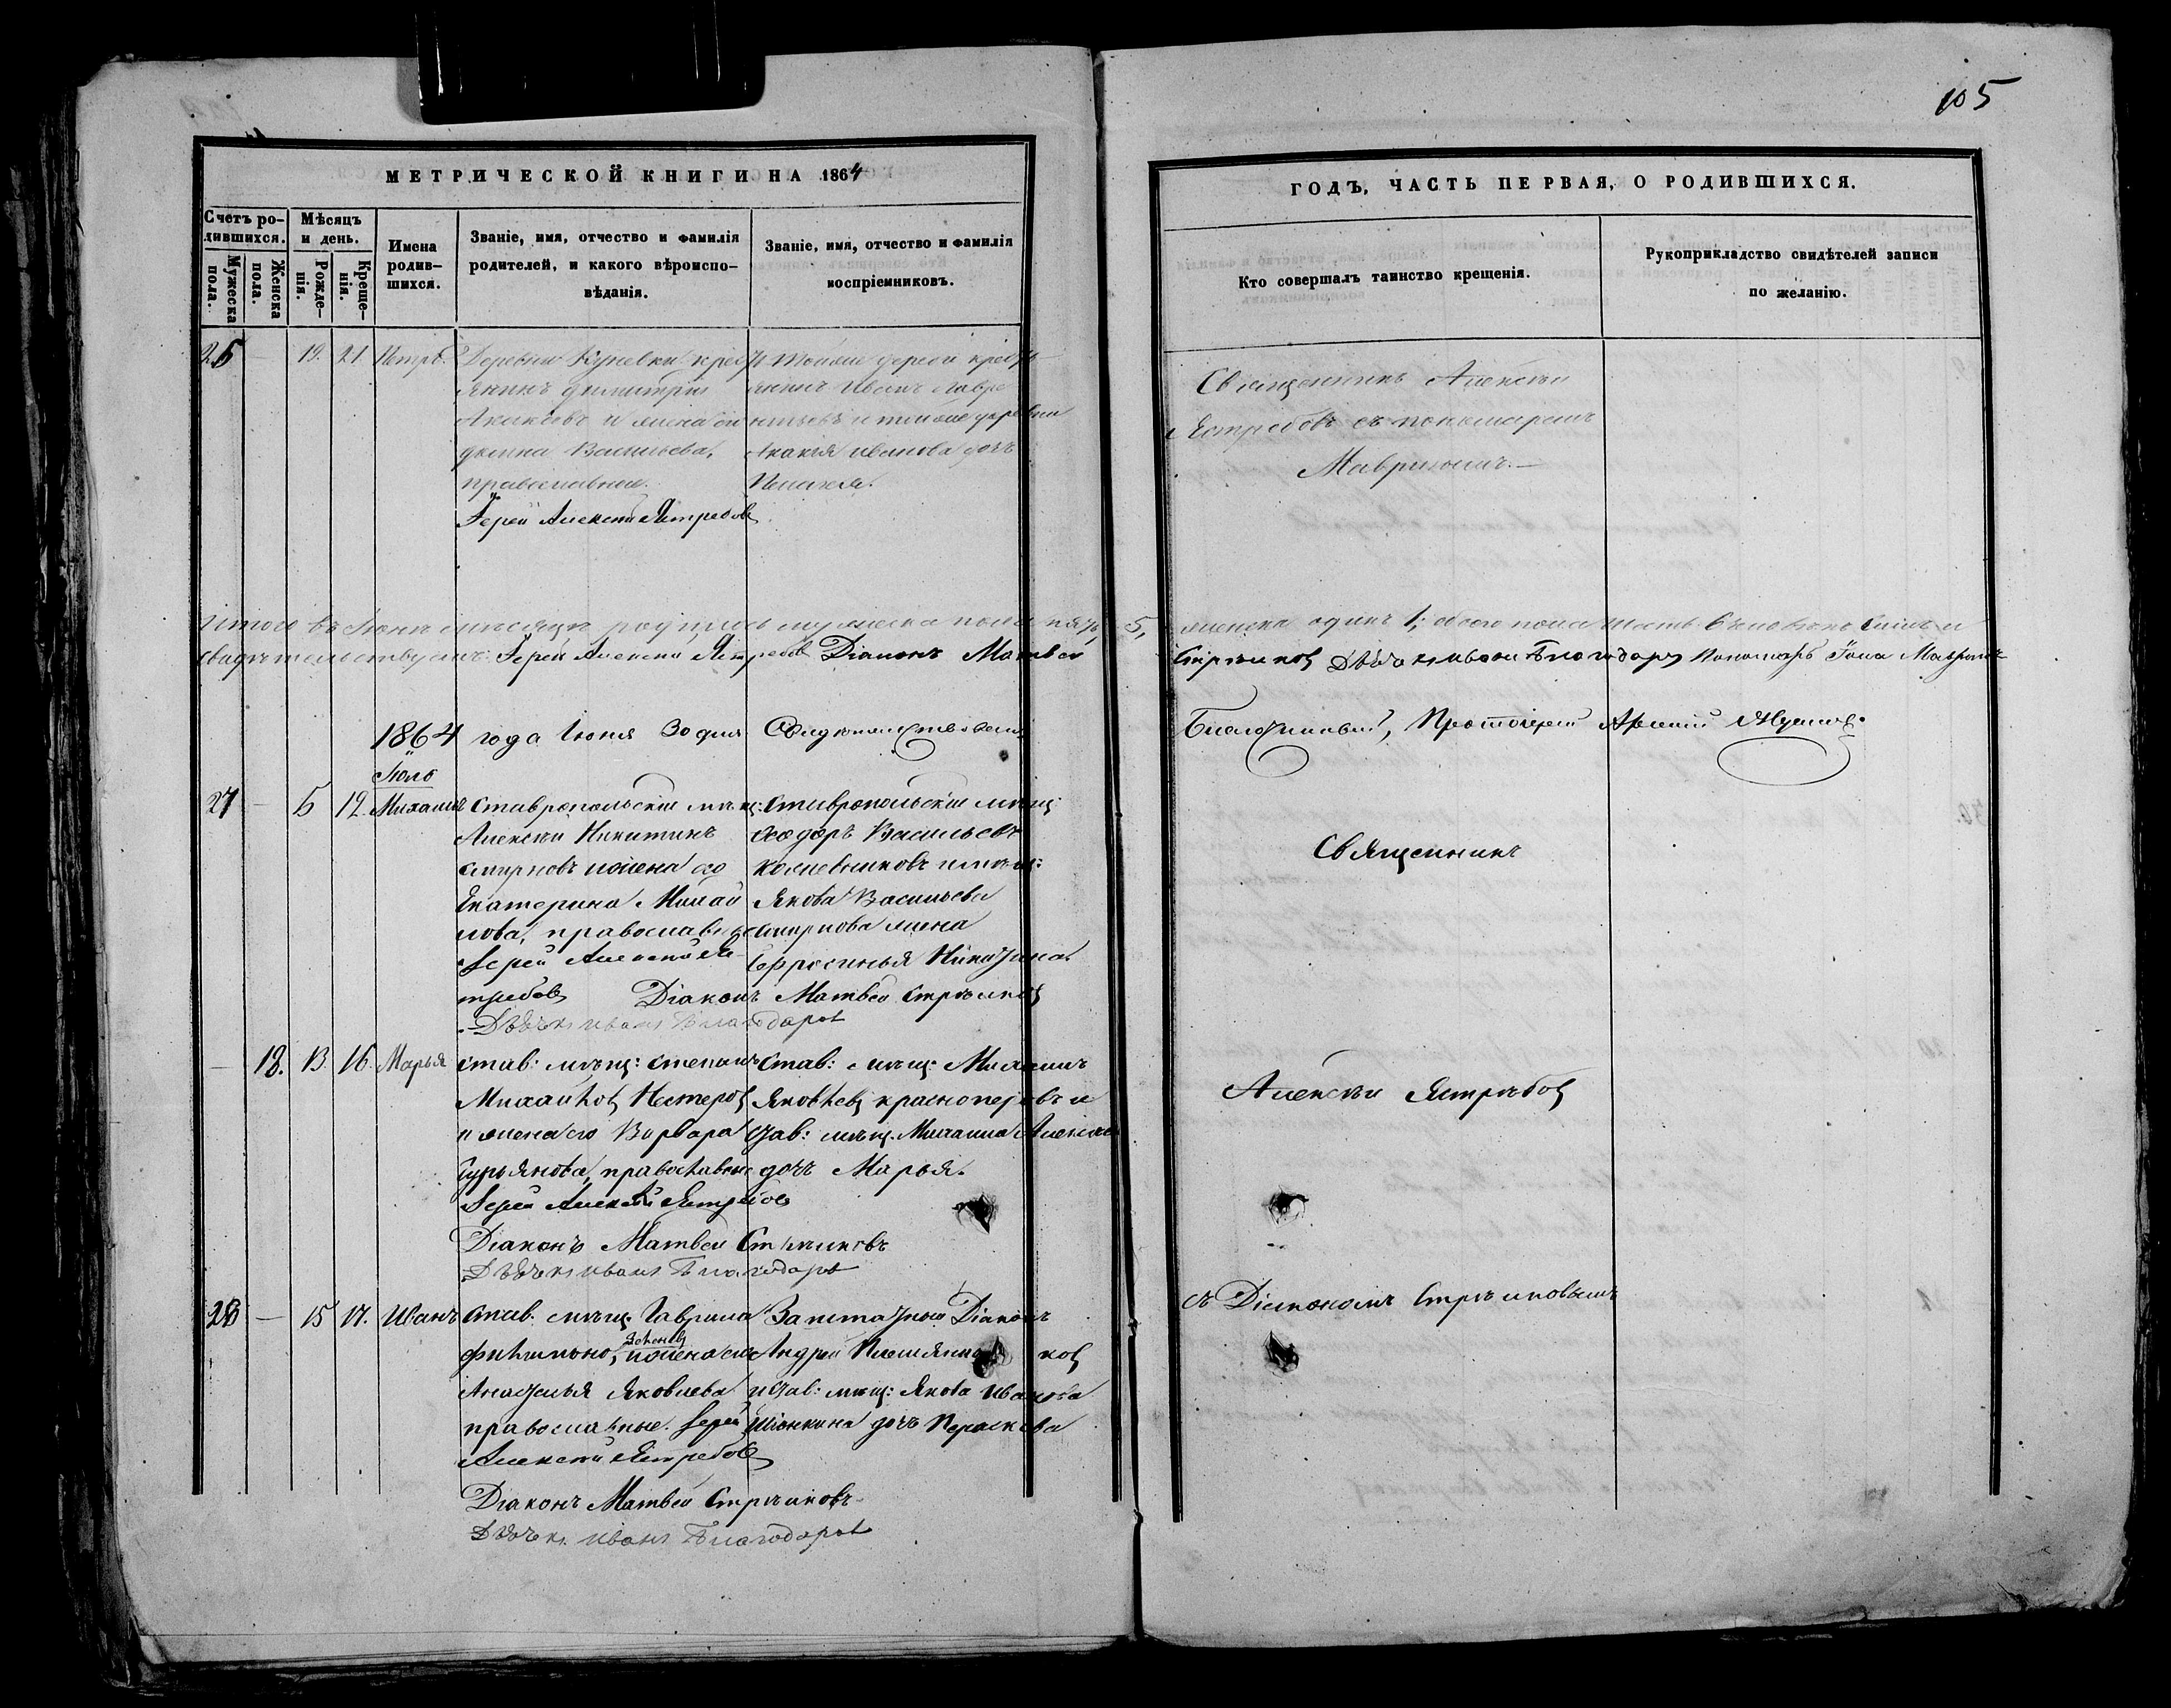 105
МЕТРИЧЕСКОЙ КНИГИ НА 1864
ГОДЪ, ЧАСТЬ ПЕРВАЯ, О РОДИВШИХСЯ.
Счетъ ро-
дившихся.
Мужеска
пола.
Женска
пола.
Мѣсяцъ
и день.
Рожде-
нія.
Креще-
нія.
Имена
родив-
шихся.
Званіе, имя, отчество и фамилія
родителей, и какого вѣроиспо-
вѣданія.
Званіе, имя, отчество и фамилія
воспріемниковъ.
Кто совершалъ таинство крещенія.
Рукоприкладство свидѣтелей записи
по желанію.
26 — 19. 21. Петръ.
Деревни крест
янинъ Димитрій
и жена его
Васильева,
православные.
Іерей Алексей Ястребов
Тойже дереви крест
янинъ Иванъ Лавре
нтьевъ и тойже деревни
Иванова дочь
Пелагея.
Священникъ Алексѣй
Ястребовъ съ пономаремъ
Мавринымъ.—
Итого въ Іюнѣ мѣсяцѣ родилось мужеска пола пять 5, женска одинъ 1; обоего пола шесть
свидѣтельствуемъ: Іерей Алексей Ястребов Діаконъ Матвей Стрѣлков Дьячекъ Иванъ Благодаров Пономарь Мавринъ
1864 года Іюня 30 дня Свидѣтельствовалъ Благочинный, Протоіерей
Іюль
27 — 5 12. Михаилъ
Ставропольскій мѣщ:
Алексѣй Никитинъ
Смирновъ и жена его
Екатерина Михай
лова, православные
Іерей Алексей Яс
требов
Ставропольскій мѣщ:
Ѳеодоръ Васильевъ
Кожевниковъ и мѣщ:
Якова Васильева
Смирнова жена
Ефросинья Никитина.
Діаконъ Матвей Стрѣлков
Дьячекъ Иванъ Благодаров
Священникъ
— 18. 13. 16. Марья
Став: мѣщ: Степанъ
Михайлов Нестеров
и жена его Варвара
Гурьянова, православные
Іерей Алексей Ястребов
Діаконъ Матвей Стрѣлковъ
Дьячекъ Иванъ Благодаров
Став: мѣщ: Михаилъ
Яковлев Красноперовъ и
Став: мѣщ. Михаила Алексѣева
дочь Марья.
Алексѣй Ястребов
28 — 15 17. Иванъ
Став. мѣщ. Гаврила
и жена его
Анастасья Яковлева
православные. Іерей
Алексей Ястребов
Діаконъ Матвей Стрѣлковъ
Дьячекъ Иванъ Благодаров
Заштатной Діаконъ
Андрей Племянников
и Став: мѣщ: Якова Иванова
дочь Параскева
съ Діакономъ Стрѣлковымъ